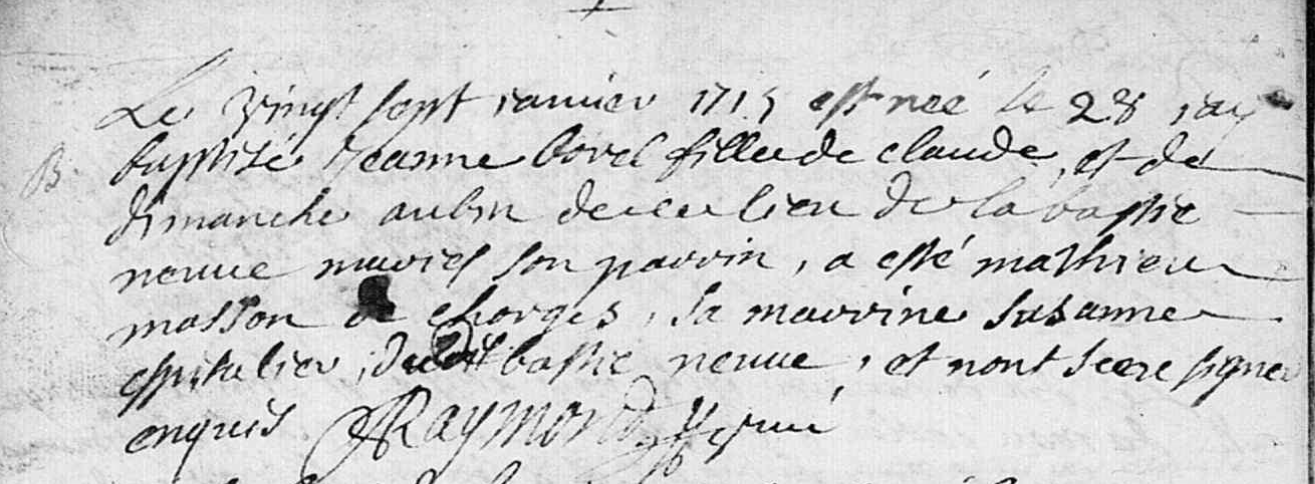 Le vingt sept ianuier 1715 est neé le 28 iay
B. baptisé Jeanne borel fille de claude, et de
dimanche aubin de ce lieu de la bastie
neuue mariés son parrin, a esté mathieu
masson de chorges, sa marrine susanne
espitalier, dudit bastie neuue, et nont sceu signer
enquis Raymond